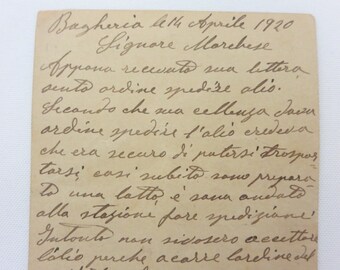 Bagheria le 14 Aprile 1920
Signore Marchese
Appena recevato sua lettera
sento ordine spedire olio.
Secondo che sua cellenza dava
ordine spedire l'olio credeva
che era securo di potersi traspor,
tarsi, casi subito sono prepara,
to una latta, è sono andato
alla stazione fare spedizione
Intonto non si accettare
l'olio perchè a carre l'ordine del